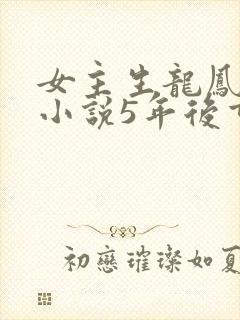 女主生龍鳳
小説5年後
初戀璀璨如夏